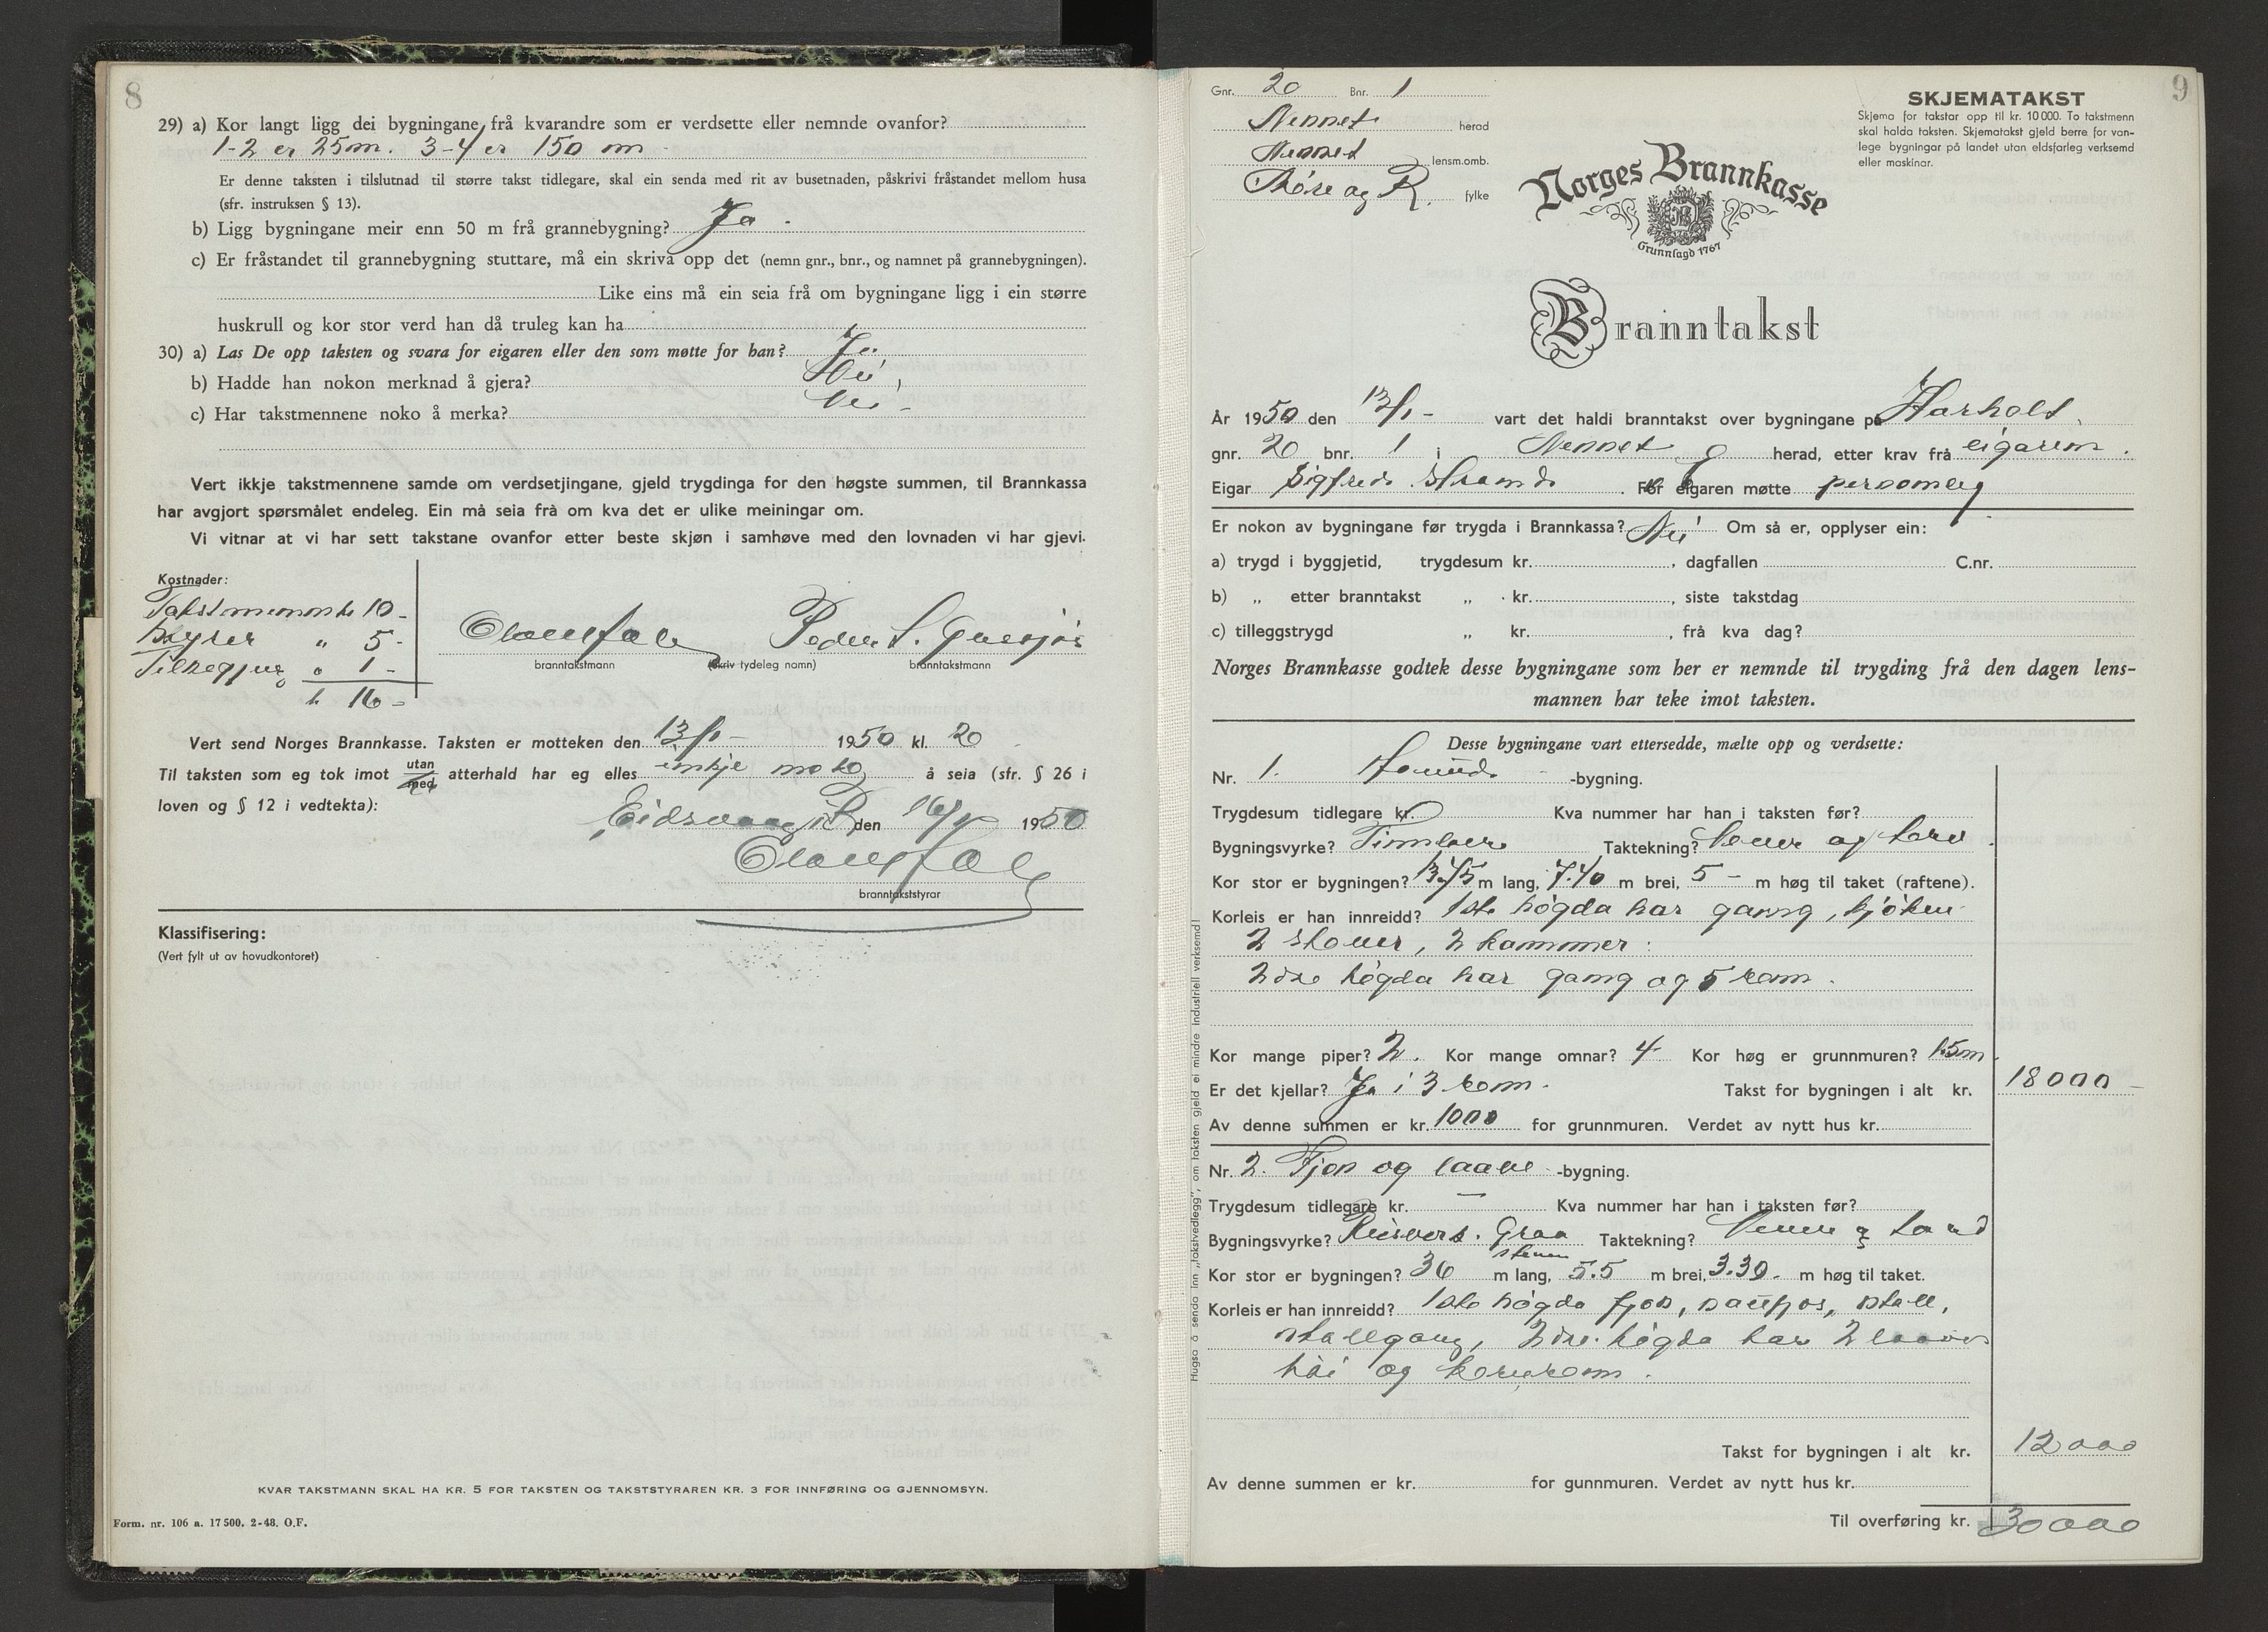 8
29) a) Kor langt ligg dei bygningane frå kvarandre som er verdsette eller nemnde ovanfor?
1-2 er 25m. 3-4 er 150 m
Er denne taksten i tilslutnad til større takst tidlegare, skal ein senda med rit av busetnaden, påskrivi fråstandet mellom husa
(sfr. instruksen § 13).
b) Ligg bygningane meir enn 50 m frå grannebygning? Ja -
c) Er fråstandet til grannebygning stuttare, må ein skriva opp det (nemn gnr., bnr., og namnet på grannebygningen).
Like eins må ein seia frå om bygningane ligg i ein større
huskrull og kor stor verd han då truleg kan ha
30) a) Las De opp taksten og svara for eigaren eller den som møtte for han? Ja
b) Hadde han nokon merknad å gjera? Nei
c) Har takstmennene noko å merka? Nei -
Vert ikkje takstmennene samde om verdsetjingane, gjeld trygdinga for den høgste summen, til Brannkassa
har avgjort spørsmålet endeleg. Ein må seia frå om kva det er ulike meiningar om.
Vi vitnar at vi har sett takstane ovanfor etter beste skjøn i samhøve med den lovnaden vi har gjevi.
Kostnader:
Takstmennene 10 -
Styrer " 5 -
1 -
16 -
Peder S.
branntakstmann (Skriv tydeleg namn) branntakstmann
Vert send Norges Brannkasse. Taksten er motteken den 13/1 - 1950 kl. 20
Til taksten som eg tok imot utan med atterhald har eg elles inkje noko å seia (sfr. § 26 i
loven og § 12 i vedtekta):
Eidsvaag i R. den 16/1 1950
branntakststyrar
Klassifisering:
(Vert fylt ut av hovudkontoret)
KVAR TAKSTMANN SKAL HA KR. 5 FOR TAKSTEN OG TAKSTSTYRAREN KR. 3 FOR INNFØRING OG GJENNOMSYN.
Form. nr. 106 a. 17 500. 2-48. O.F.
9
Gnr. 20 Bnr. 1
Nesset herad
Nesset lensm.omb.
Møre og R. fylke
SKJEMATAKST
Skjema for takstar opp til kr. 10 000. To takstmenn
skal halda taksten. Skjematakst gjeld berre for van-
lege bygningar på landet utan eldsfarleg verksemd
eller maskinar.
Norges Brannkasse
Grunnlagd 1767
Branntakst
År 1950 den 13/1 - vart det haldi branntakst over bygningane på Harholt.
gnr. 20 bnr. 1 i Nesset herad, etter krav frå eigaren.
Eigar Sigfred Strand. For eigaren møtte personleg
Er nokon av bygningane før trygda i Brannkassa? Nei Om så er, opplyser ein:
a) trygd i byggjetid, trygdesum kr. , dagfallen C.nr.
b) „ etter branntakst „ kr. , siste takstdag
c) tilleggstrygd „ kr. , frå kva dag?
Norges Brannkasse godtek desse bygningane som her er nemnde til trygding frå den dagen lens-
mannen har teke imot taksten.
Desse bygningane vart ettersedde, mælte opp og verdsette:
Nr. 1. -bygning.
Trygdesum tidlegare kr. Kva nummer har han i taksten før?
Bygningsvyrke? Timber Taktekning? Never og torv.
Kor stor er bygningen? 13.75 m lang, 7.40 m brei, 5 - m høg til taket (raftene).
Korleis er han innreidd? 1ste høgda har gang, kjøken
2 stover, 2 kammer:
2dre høgda har gang og 5 rom.
Kor mange piper? 2. Kor mange omnar? 4 Kor høg er grunnmuren? 1.5m.
Er det kjellar? Ja i 3 rom. Takst for bygningen i alt kr. 18 000 -
Av denne summen er kr. 1000 for grunnmuren. Verdet av nytt hus kr.
Nr. 2. Fjøs og laave -bygning.
Trygdesum tidlegare kr. - Kva nummer har han i taksten før?
Bygningsvyrke? Reisverk. Graa Taktekning? Never og torv
steinen
Kor stor er bygningen? 36 m lang, 5.5 m brei, 3.30. m høg til taket.
Korleis er han innreidd? 1ste høgda fjøs, saufjøs, stall,
stallgang, 2dre høgda har 2 laaver
høi og kornrom.
Takst for bygningen i alt kr. 12 000
Av denne summen er kr. for gunnmuren. Verdet av nytt hus kr.
Til overføring kr. 30 000
Hugsa å senda inn „takstvedlegg”, om taksten gjeld ei mindre industriell verksemd!